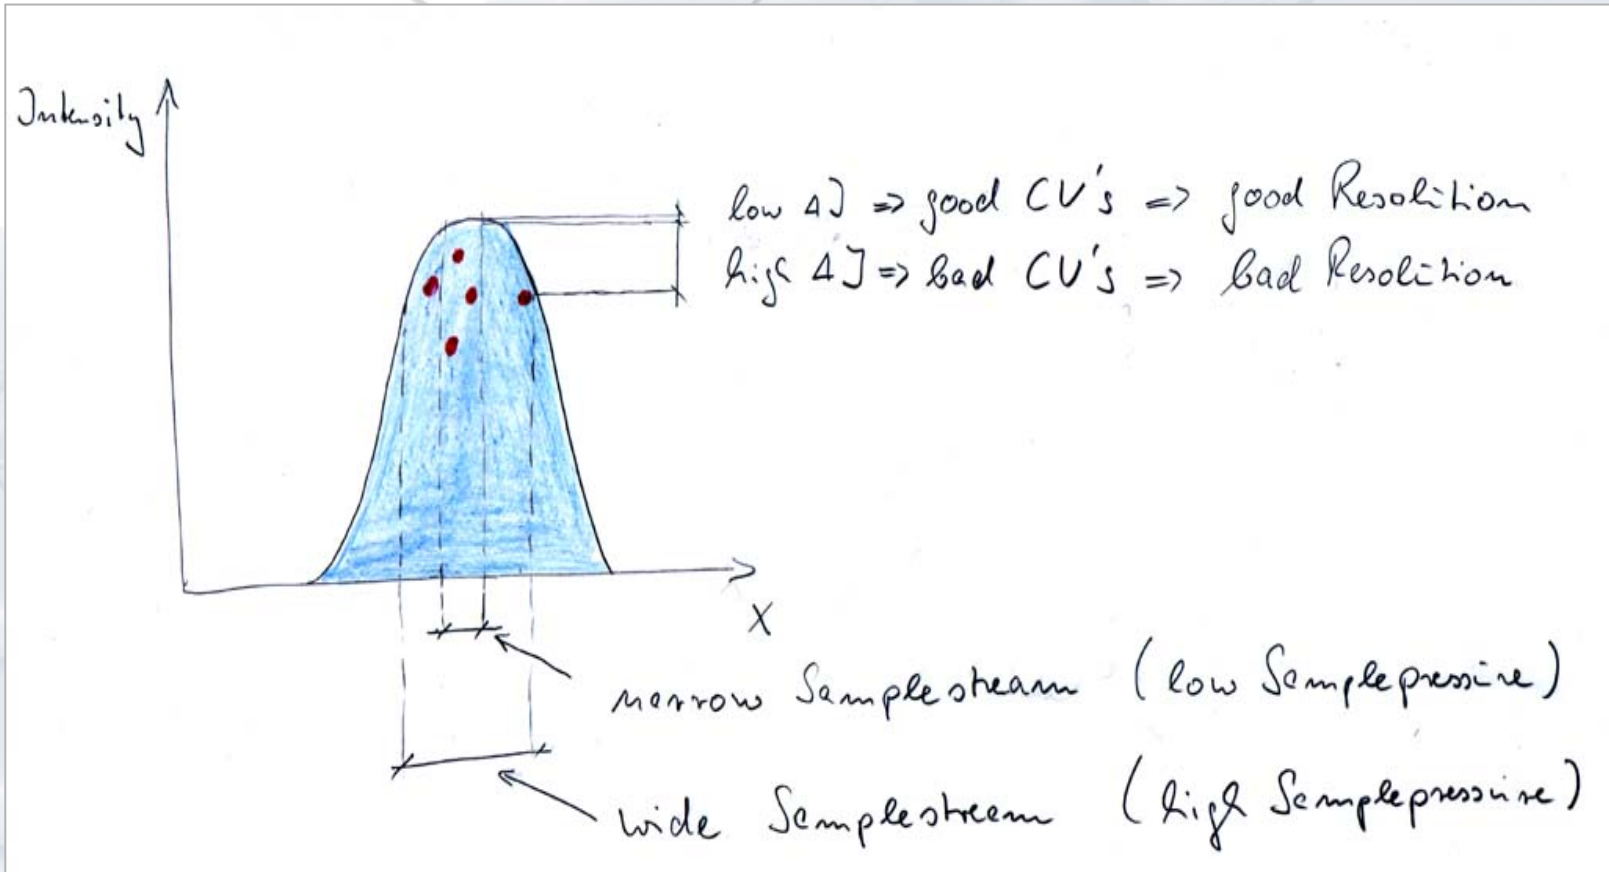 Intensity
low ΔJ => good CV's => good Resolution
high ΔJ => bad CV's => bad Resolution
X
narrow Samplestream (low Samplepressure)
wide Samplestream (high Samplepressure)